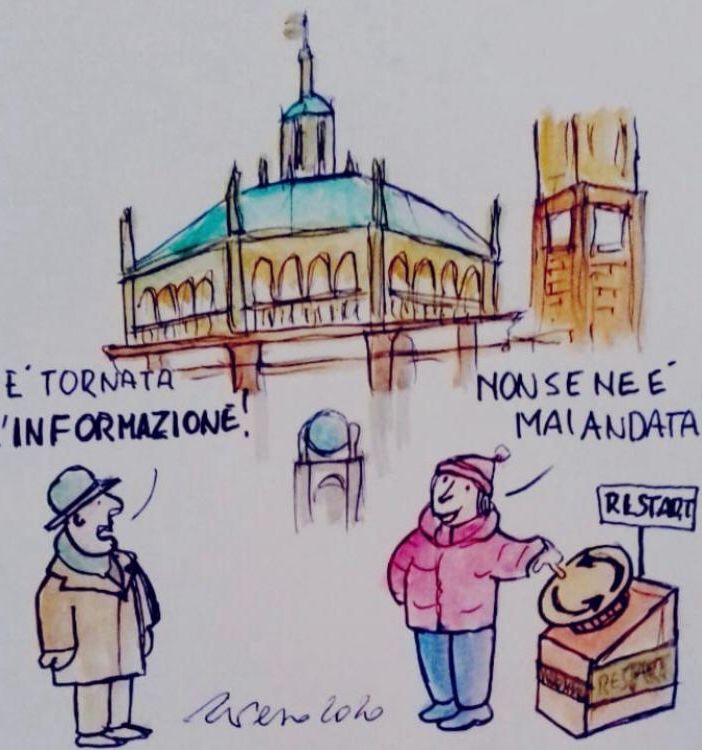 E' TORNATA
L'INFORMAZIONE!
NON SE NE E'
MAI ANDATA
RESTART
2020